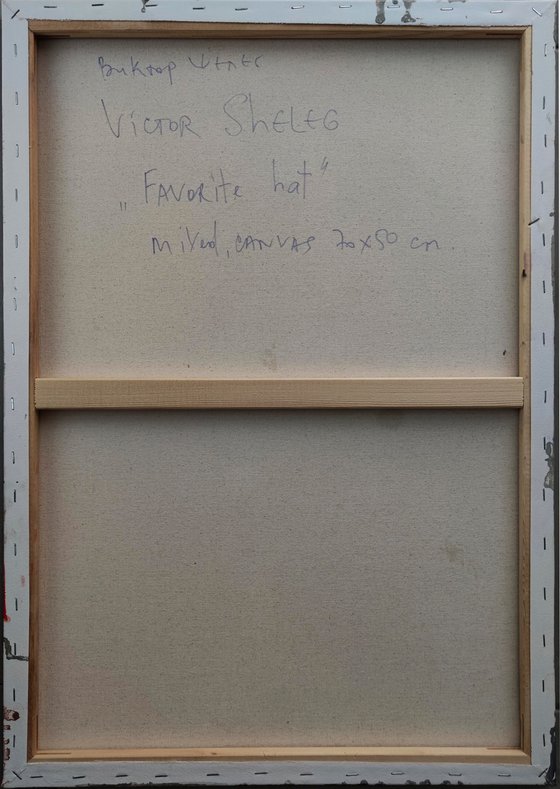 Виктор Шелег
VICTOR SHELEG
„FAVORITE hat"
mixed, CANVAS 70x50 cm.